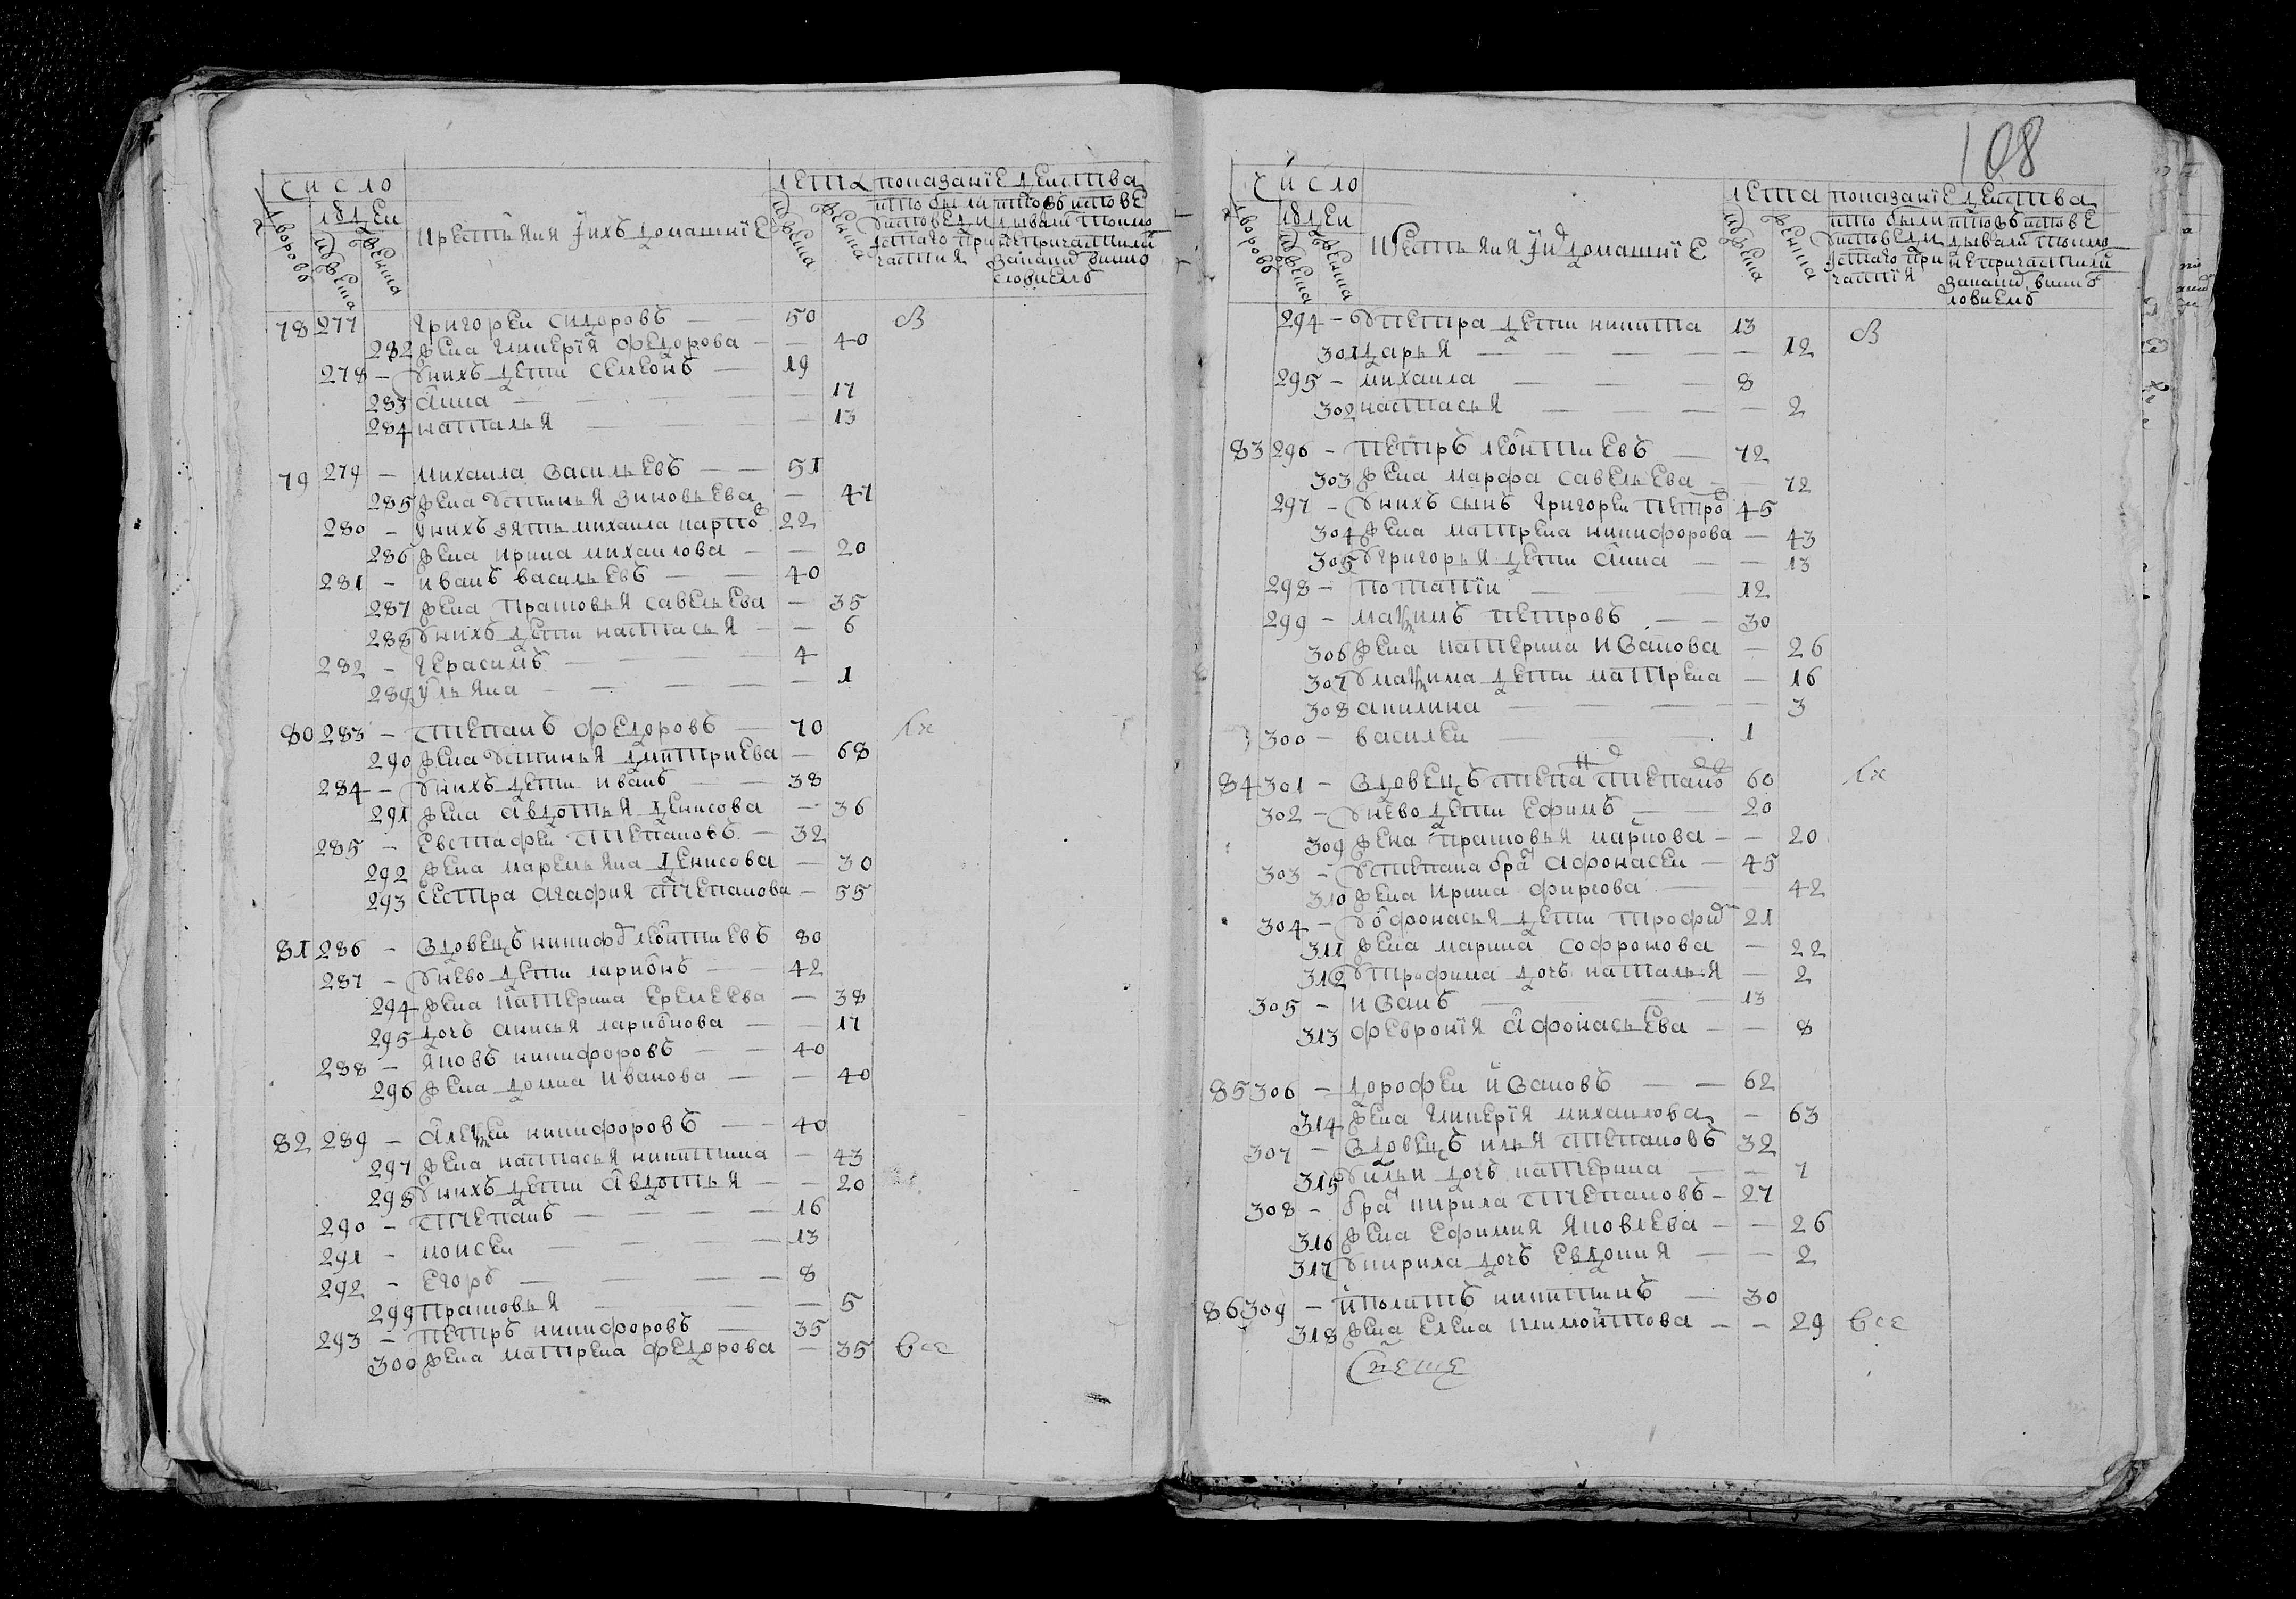 число
лета показание действа
людей
дворовъ
мужеска
женска
крестьяня и ихъ домашние
мужеска
женска
78 277 григореи сидоровъ 50
282 жена гликерия федорова 40
278 – У нихъ дети семенъ 19
283 анна 17
284 наталья 13
79 279 – михаила васильевъ 51
285 жена устинья зиновьева 47
280 – У нихъ зять михаила карпо 22
286 жена ирина михаилова – 20
281 – иванъ васильевъ 40
287 жена прасковья савельева – 35
288 У нихъ дети настасья – 6
282 – герасимъ 4
289 ульяна 1
80 283 – степанъ федоровъ 70
290 жена устинья дмитриева – 68
284 – У нихъ дети иванъ 38
291 жена авдотья денисова – 36
285 – евстафеи степановъ – 32
292 жена маремьяна денисова – 30
293 сестра агафия степанова – 55
81 286 – вдовецъ никифо леонтиевъ 80
287 – У нево дети ларионъ 42
294 жена катерина еремеева – 38
295 дочь анисья ларионова – 17
288 – яковъ никифоровъ 40
296 жена домна иванова – 40
82 289 – алексеи никифоровъ 40
297 жена настасья никитина – 43
298 У нихъ дети авдотья – 20
290 – степанъ 16
291 – моисеи 13
292 – егоръ 8
299 прасковья 5
293 – петръ никифоровъ 35
300 жена матрена федорова – 35 все
108
число
лета показание действа
людеи
дворовъ
мужеска
женска
крестьяня и их домашние
мужеска
женска
294 – У петра дети никита 13
301 дарья 12
295 – михаила 8
302 настасья 2
83 296 – петръ леонтиевъ 72
303 жена марфа савельева 72
297 – У нихъ сынъ григореи петро 45
304 жена матрена никифорова – 43
305 У григорья дети анна 13
298 – потапии 12
299 – максимъ петровъ 30
306 жена катерина иванова – 26
307 У максима дети матрена – 16
308 акилина 3
300 – василеи 1
84 301 – вдовецъ степа степано 60
302 – У нево дети ефимъ 20
309 жена прасковья маркова – 20
303 – У степана бра афонасеи – 45
310 жена ирина фирсова 42
304 – У офонасья дети трофи 21
311 жена марина софронова – 22
312 У трофима дочь наталья – 2
305 – иванъ 13
313 феврония афонасьева – 8
85 306 – дорофеи ивановъ 62
314 жена гликерия михаилова – 63
307 – вдовецъ илья степановъ 32
315 У ильи дочь катерина 7
308 – бра кирила степановъ – 27
316 жена ефимия яковлева – 26
317 У кирила дочь евдокия 2
86 309 – иполитъ никитинъ 30
318 жена елена – 29 все